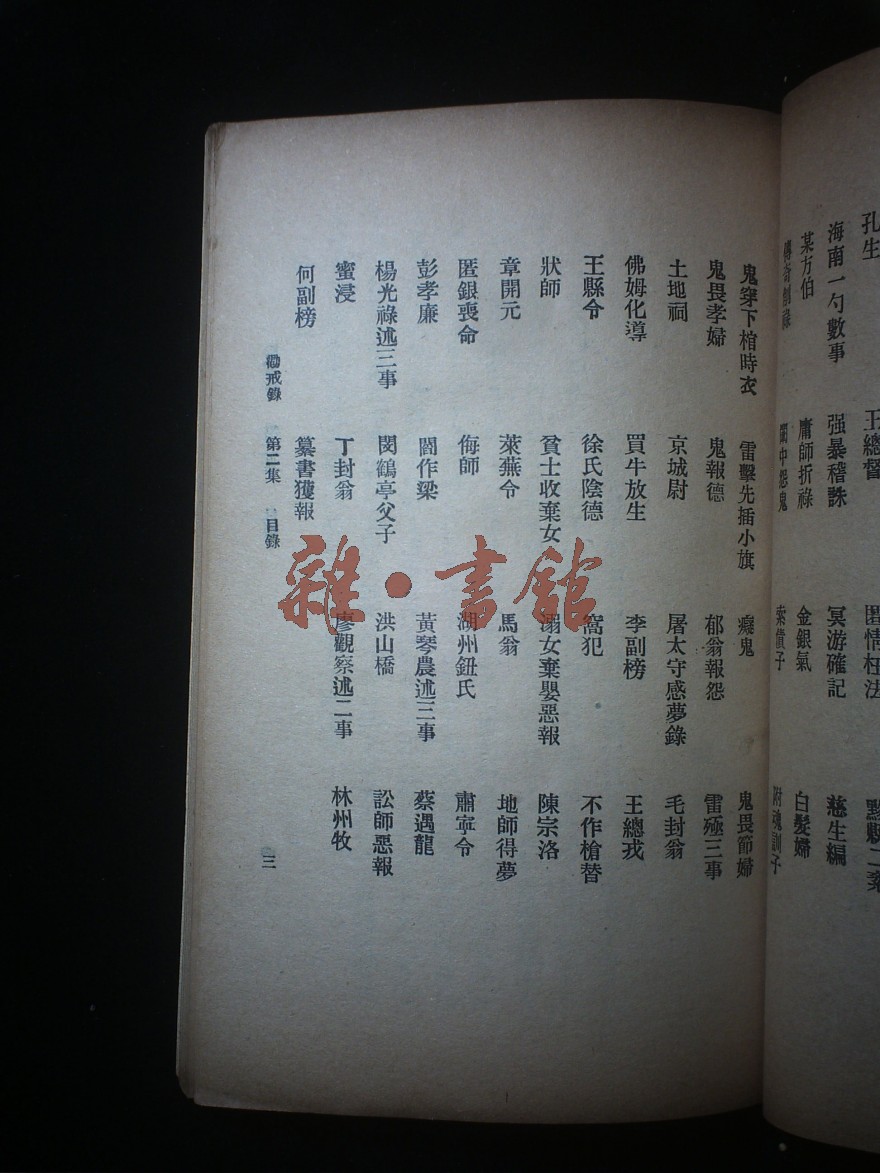 孔生　王總督　匿情枉法
海南一勺數事　强暴稽誅　冥游確記　慈生編
某方伯　庸師折祿　金銀氣　白髮婦
索債子　附魂訓子
鬼穿下棺時衣　雷擊先插小旗　癡鬼　鬼畏節婦
鬼畏孝婦　鬼報德　郁翁報怨　雷殛三事
土地祠　京城尉　屠太守感夢錄　毛封翁
佛姆化導　買牛放生　李副榜　王總戎
王縣令　徐氏陰德　窩犯　不作槍替
狀師　貧士收棄女　溺女棄嬰惡報　陳宗洛
章開元　萊蕪令　馬翁　地師得夢
匿銀喪命　侮師　湖州鈕氏　肅寧令
彭孝廉　閻作梁　黃琴農述三事　蔡遇龍
楊光祿述三事　閔鶴亭父子　洪山橋　訟師惡報
蜜浸　丁封翁　廖觀察述二事　林州牧
何副榜　纂書獲報
勸戒錄　第二集　目錄　三
雜·書館